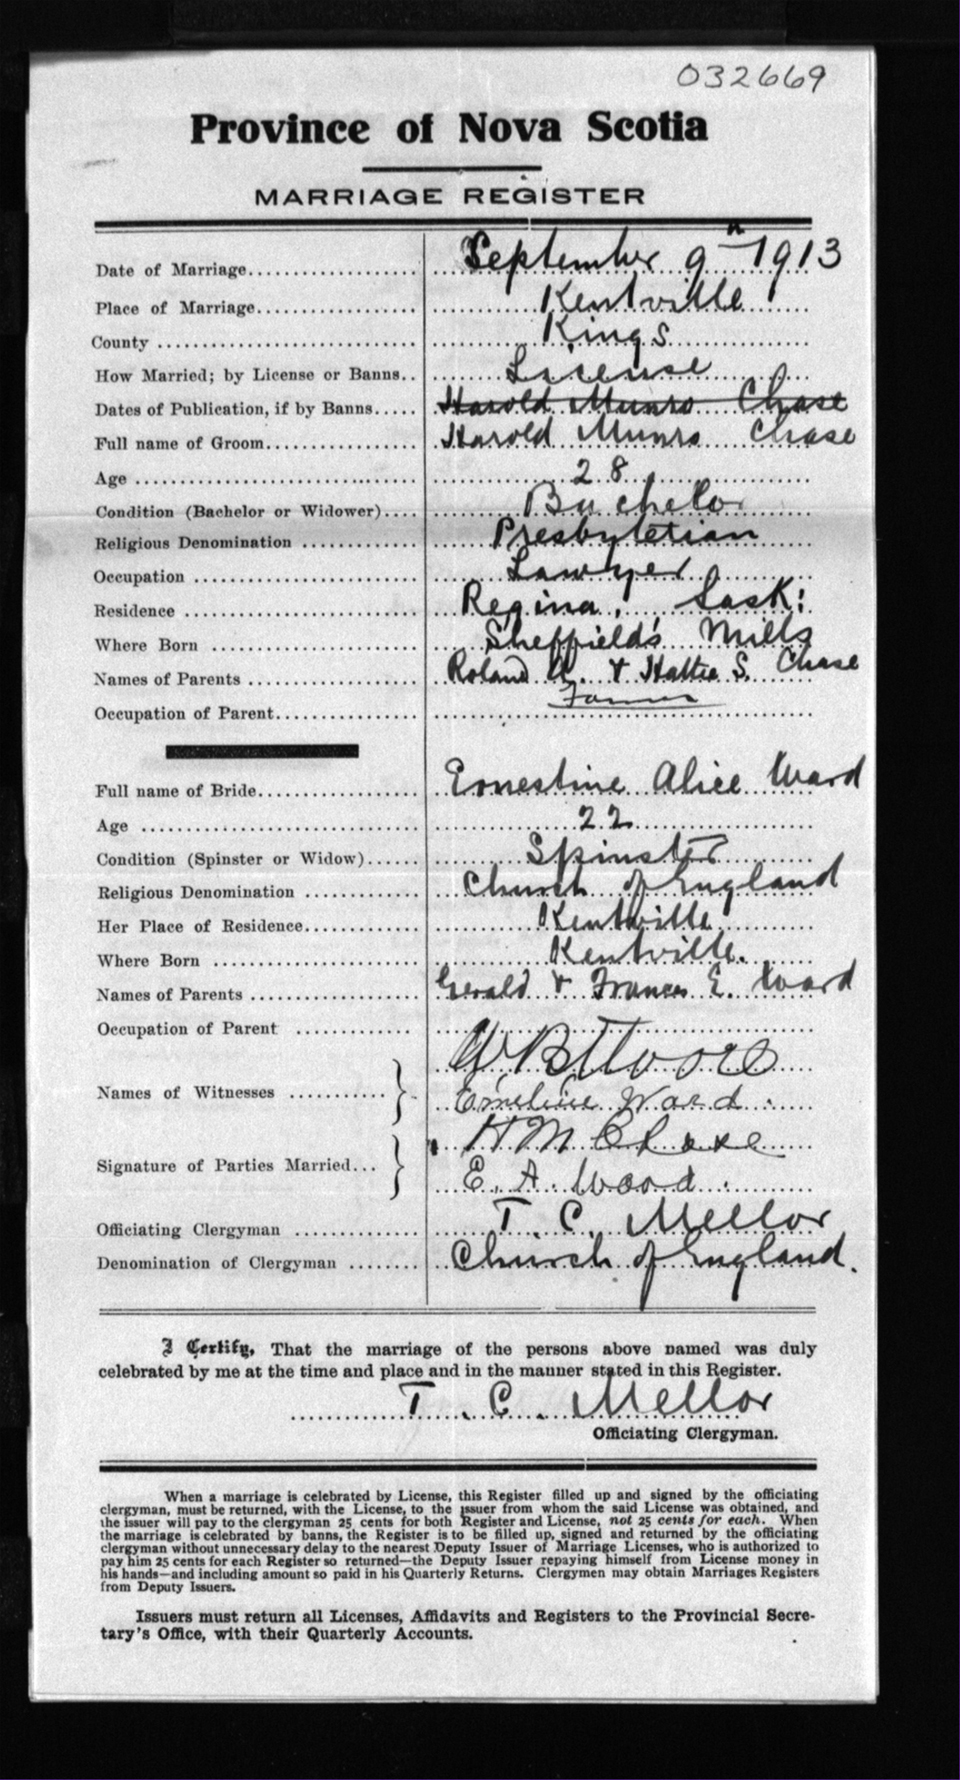 032669
Province of Nova Scotia
MARRIAGE REGISTER
Date of Marriage September 9th 1913
Place of Marriage Kentville
County Kings
How Married; by License or Banns License
Dates of Publication, if by Banns Harold Munro Chase
Full name of Groom Harold Munro Chase
Age 28
Condition (Bachelor or Widower) Bachelor
Religious Denomination Presbyterian
Occupation Lawyer
Residence Regina, Sask:
Where Born Sheffield's Mills
Names of Parents Roland A. & Hattie S. Chase
Occupation of Parent Farmer
Full name of Bride Ernestine Alice Ward
Age 22
Condition (Spinster or Widow) Spinster
Religious Denomination Church of England
Her Place of Residence Kentville
Where Born Kentville.
Names of Parents Gerald & Frances E. Ward
Occupation of Parent
W B Moore
Names of Witnesses
Emeline Ward.
H M Chase
Signature of Parties Married
E. A. Ward.
Officiating Clergyman T C. Mellor
Denomination of Clergyman Church of England.
I Certify, That the marriage of the persons above named was duly
celebrated by me at the time and place and in the manner stated in this Register.
T. C. Mellor
Officiating Clergyman.
When a marriage is celebrated by License, this Register filled up and signed by the officiating
clergyman, must be returned, with the License, to the issuer from whom the said License was obtained, and
the issuer will pay to the clergyman 25 cents for both Register and License, not 25 cents for each. When
the marriage is celebrated by banns, the Register is to be filled up, signed and returned by the officiating
clergyman without unnecessary delay to the nearest Deputy Issuer of Marriage Licenses, who is authorized to
pay him 25 cents for each Register so returned—the Deputy Issuer repaying himself from License money in
his hands—and including amount so paid in his Quarterly Returns. Clergymen may obtain Marriages Registers
from Deputy Issuers.
Issuers must return all Licenses, Affidavits and Registers to the Provincial Secre-
tary's Office, with their Quarterly Accounts.